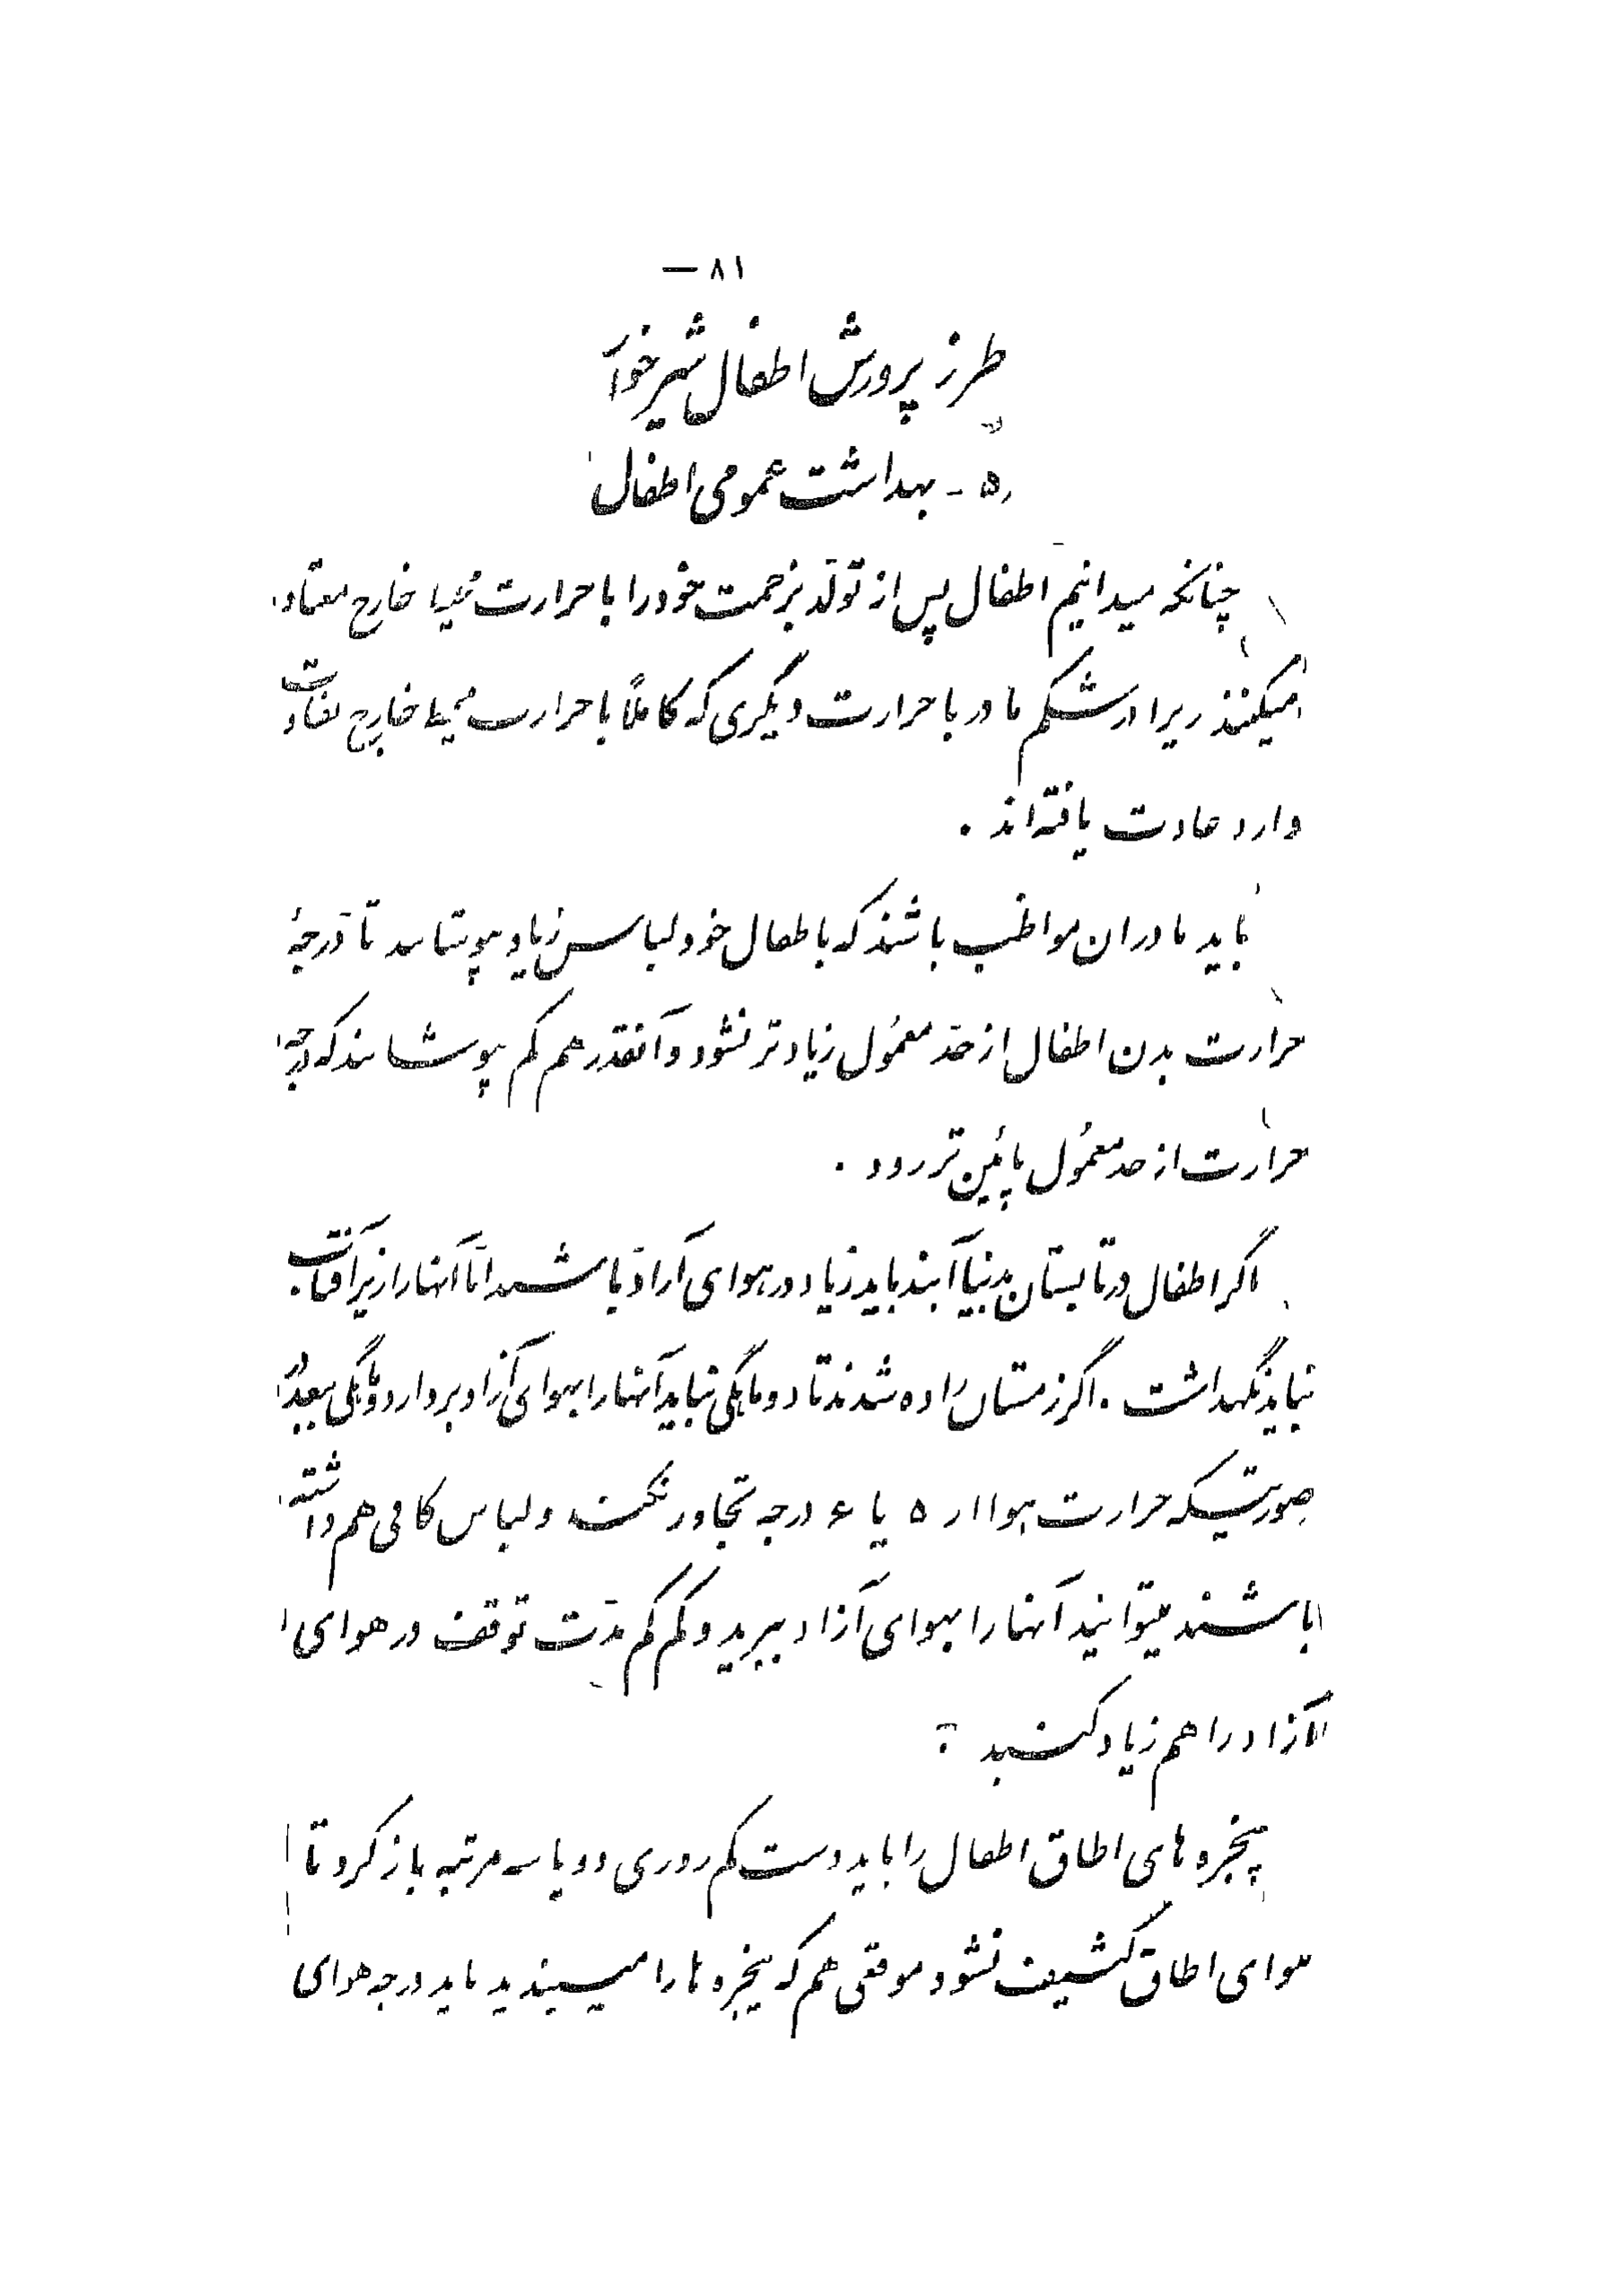 ۸۱ —
طرز پرورش اطفال شیرخوا
۵ - بهداشت عمومی اطفال
چنانکه میدانیم اطفال پس از تولّد بزحمت خود را با حرارت محیط خارج معتاد
میکنند زیرا در شکم مادر با حرارت دیگری که کاملاً با حرارت محیط خارج تفاوت
دارد عادت یافته‌اند .
باید مادران مواظب باشند که باطفال خود لباس زیاد نپوشانند تا درجهٔ
حرارت بدن اطفال از حد معمول زیادتر نشود و آنقدر هم کم نپوشانند که درجهٔ
حرارت از حد معمول پائین تر رود .
اگر اطفال در تابستان بدنیا آیند باید زیاد در هوای آزاد باشند امّا آنها را زیر آفتاب
نباید نگهداشت . اگر زمستان زاده شدند تا دوماهگی نباید آنها را بهوای آزاد برد از دوماهگی ببعد در
صورتیکه حرارت هوا از ۵ یا ۶ درجه تجاوز نکند و لباس کافی هم داشته
باشند میتوانید آنها را بهوای آزاد ببرید و کم کم مدّت توقف در هوای
آزاد را هم زیاد کنید .
پنجره های اطاق اطفال را باید دست کم روزی دو یا سه مرتبه باز کرد تا
هوای اطاق کثیف نشود موقعی هم که پنجره ها را میبندید باید درجه هوای